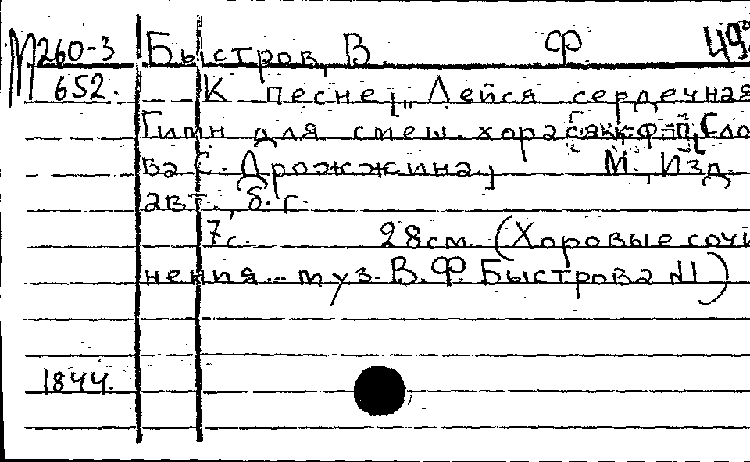 М260-3 Быстров, В. Ф 49
652. К песне, „Лейся сердечная
Гимн для смеш. хора с акк. ф-п. Сло
ва С. Дрожжина, М., Изд.
авт., б. г.
7с. 28см. (Хоровые сочи
нения - муз. В. Ф. Быстрова №1)
1844.